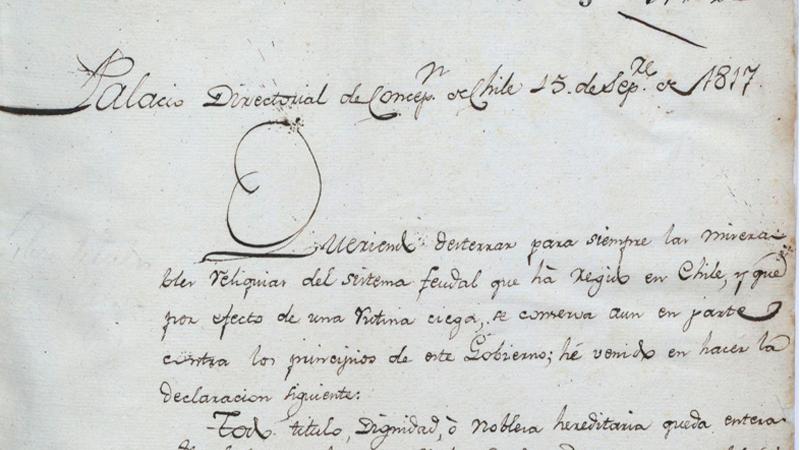 Palacio Directorial de Concepn. de Chile 15. de Sepre. de 1817
Queriendo desterrar para siempre las misera-
bles reliquias del sistema feudal que há regido en Chile, y que
por efecto de una rutina ciega, se conserva aun en parte
contra los principios de este Gobierno; hé venido en hacer la
declaracion siguiente:
Todo titulo, Dignidad, ò Nobleza hereditaria queda entera-